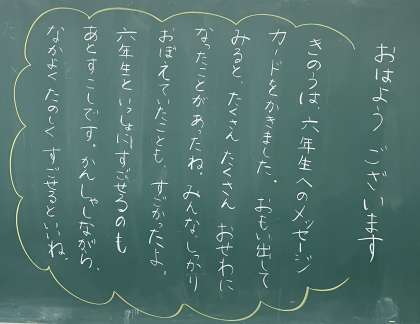 おはよう ございます
きのうは、六年生へのメッセージ
カードをかきました。 おもい出して
みると、たくさん たくさん おせわに
なったことがあったね。みんな、しっかり
おぼえていたことも、すごかったよ。
六年生といっしょにすごせるのも
あとすこしです。かんしゃしながら、
なかよく たのしく すごせるといいね。